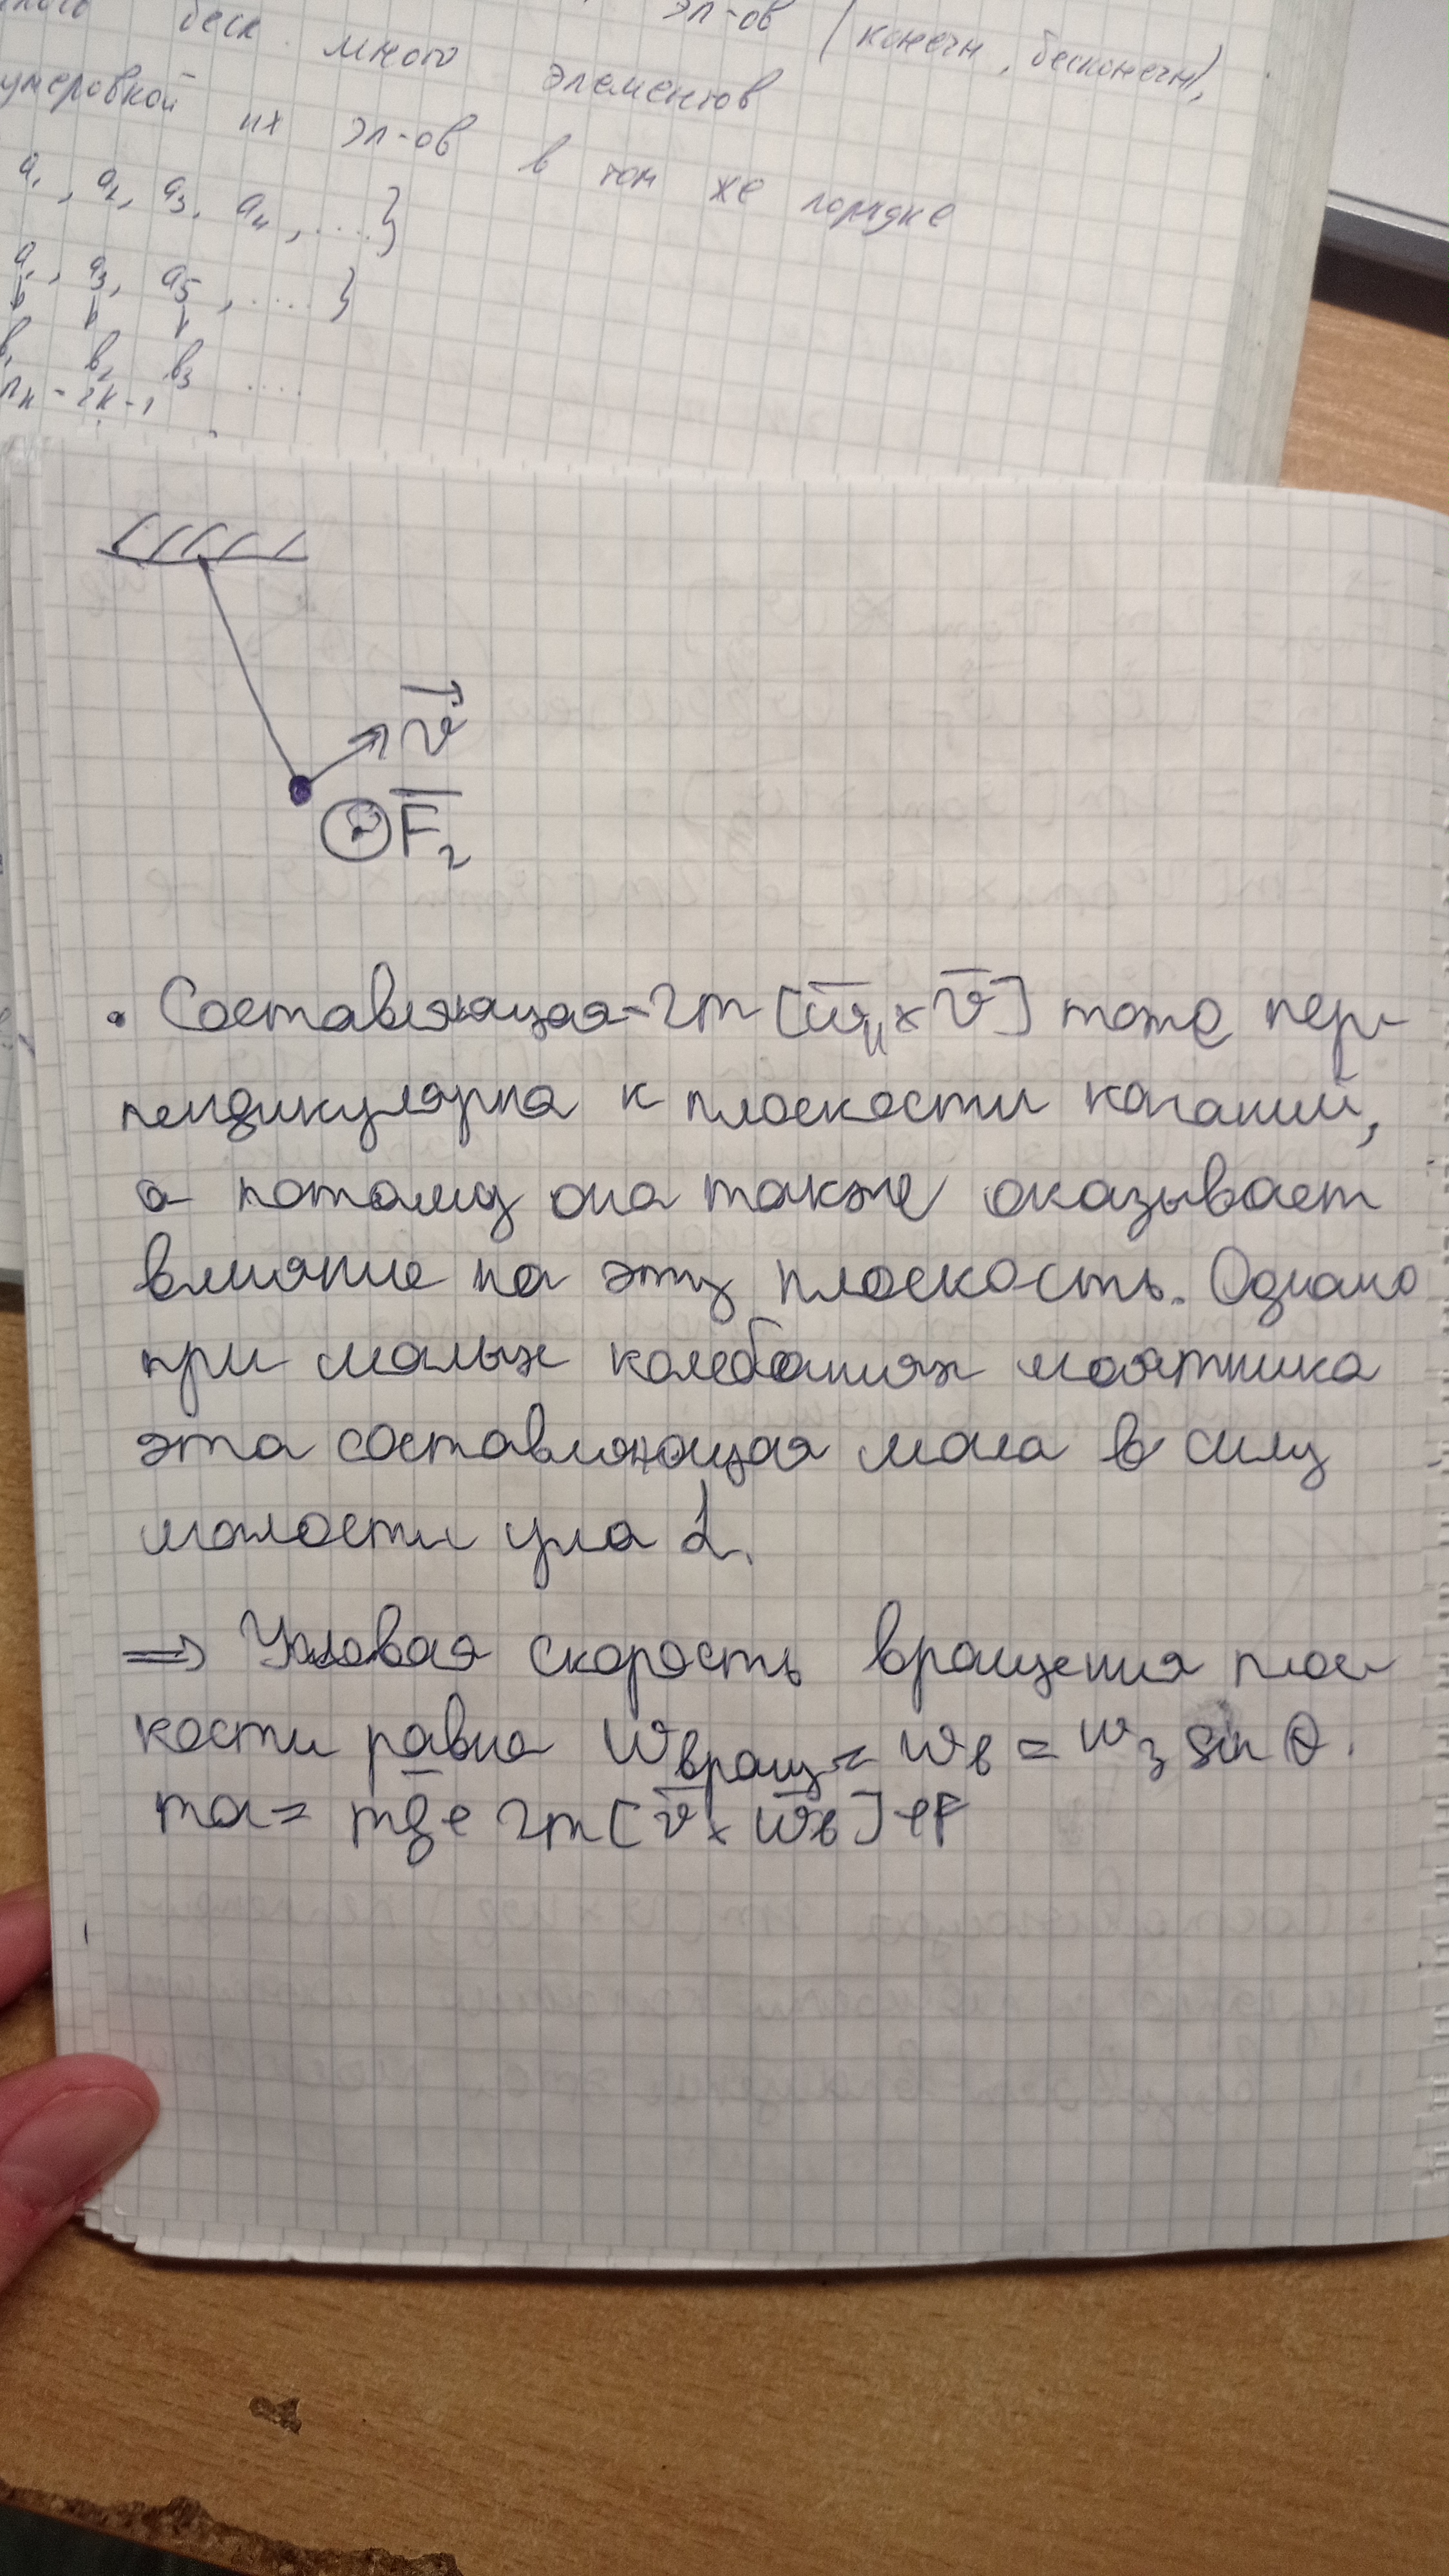 беск. много элементов эл-ов (конечн, бесконечн),
умеровкой их эл-ов в том же порядке
a₁, a₂, a₃, a₄, ....}
a₁, a₃, a₅, ....}
в₁ в₂ в₃ ....
nₖ - 2k-1
v⃗
F̅₂
• Составляющая -2m[ω̅ᵢᵢ × v̅] тоже пер-
пендикулярна к плоскости качаний,
а потому она также оказывает
влияние на эту плоскость. Однако
при малых колебаниях маятника
эта составляющая мала в силу
малости угла α.
⇒ Угловая скорость вращения плос-
кости равна ω вращ = ωв = ω₃ sin θ.
ma = mg + 2m[v̅ × ω̅в] + F